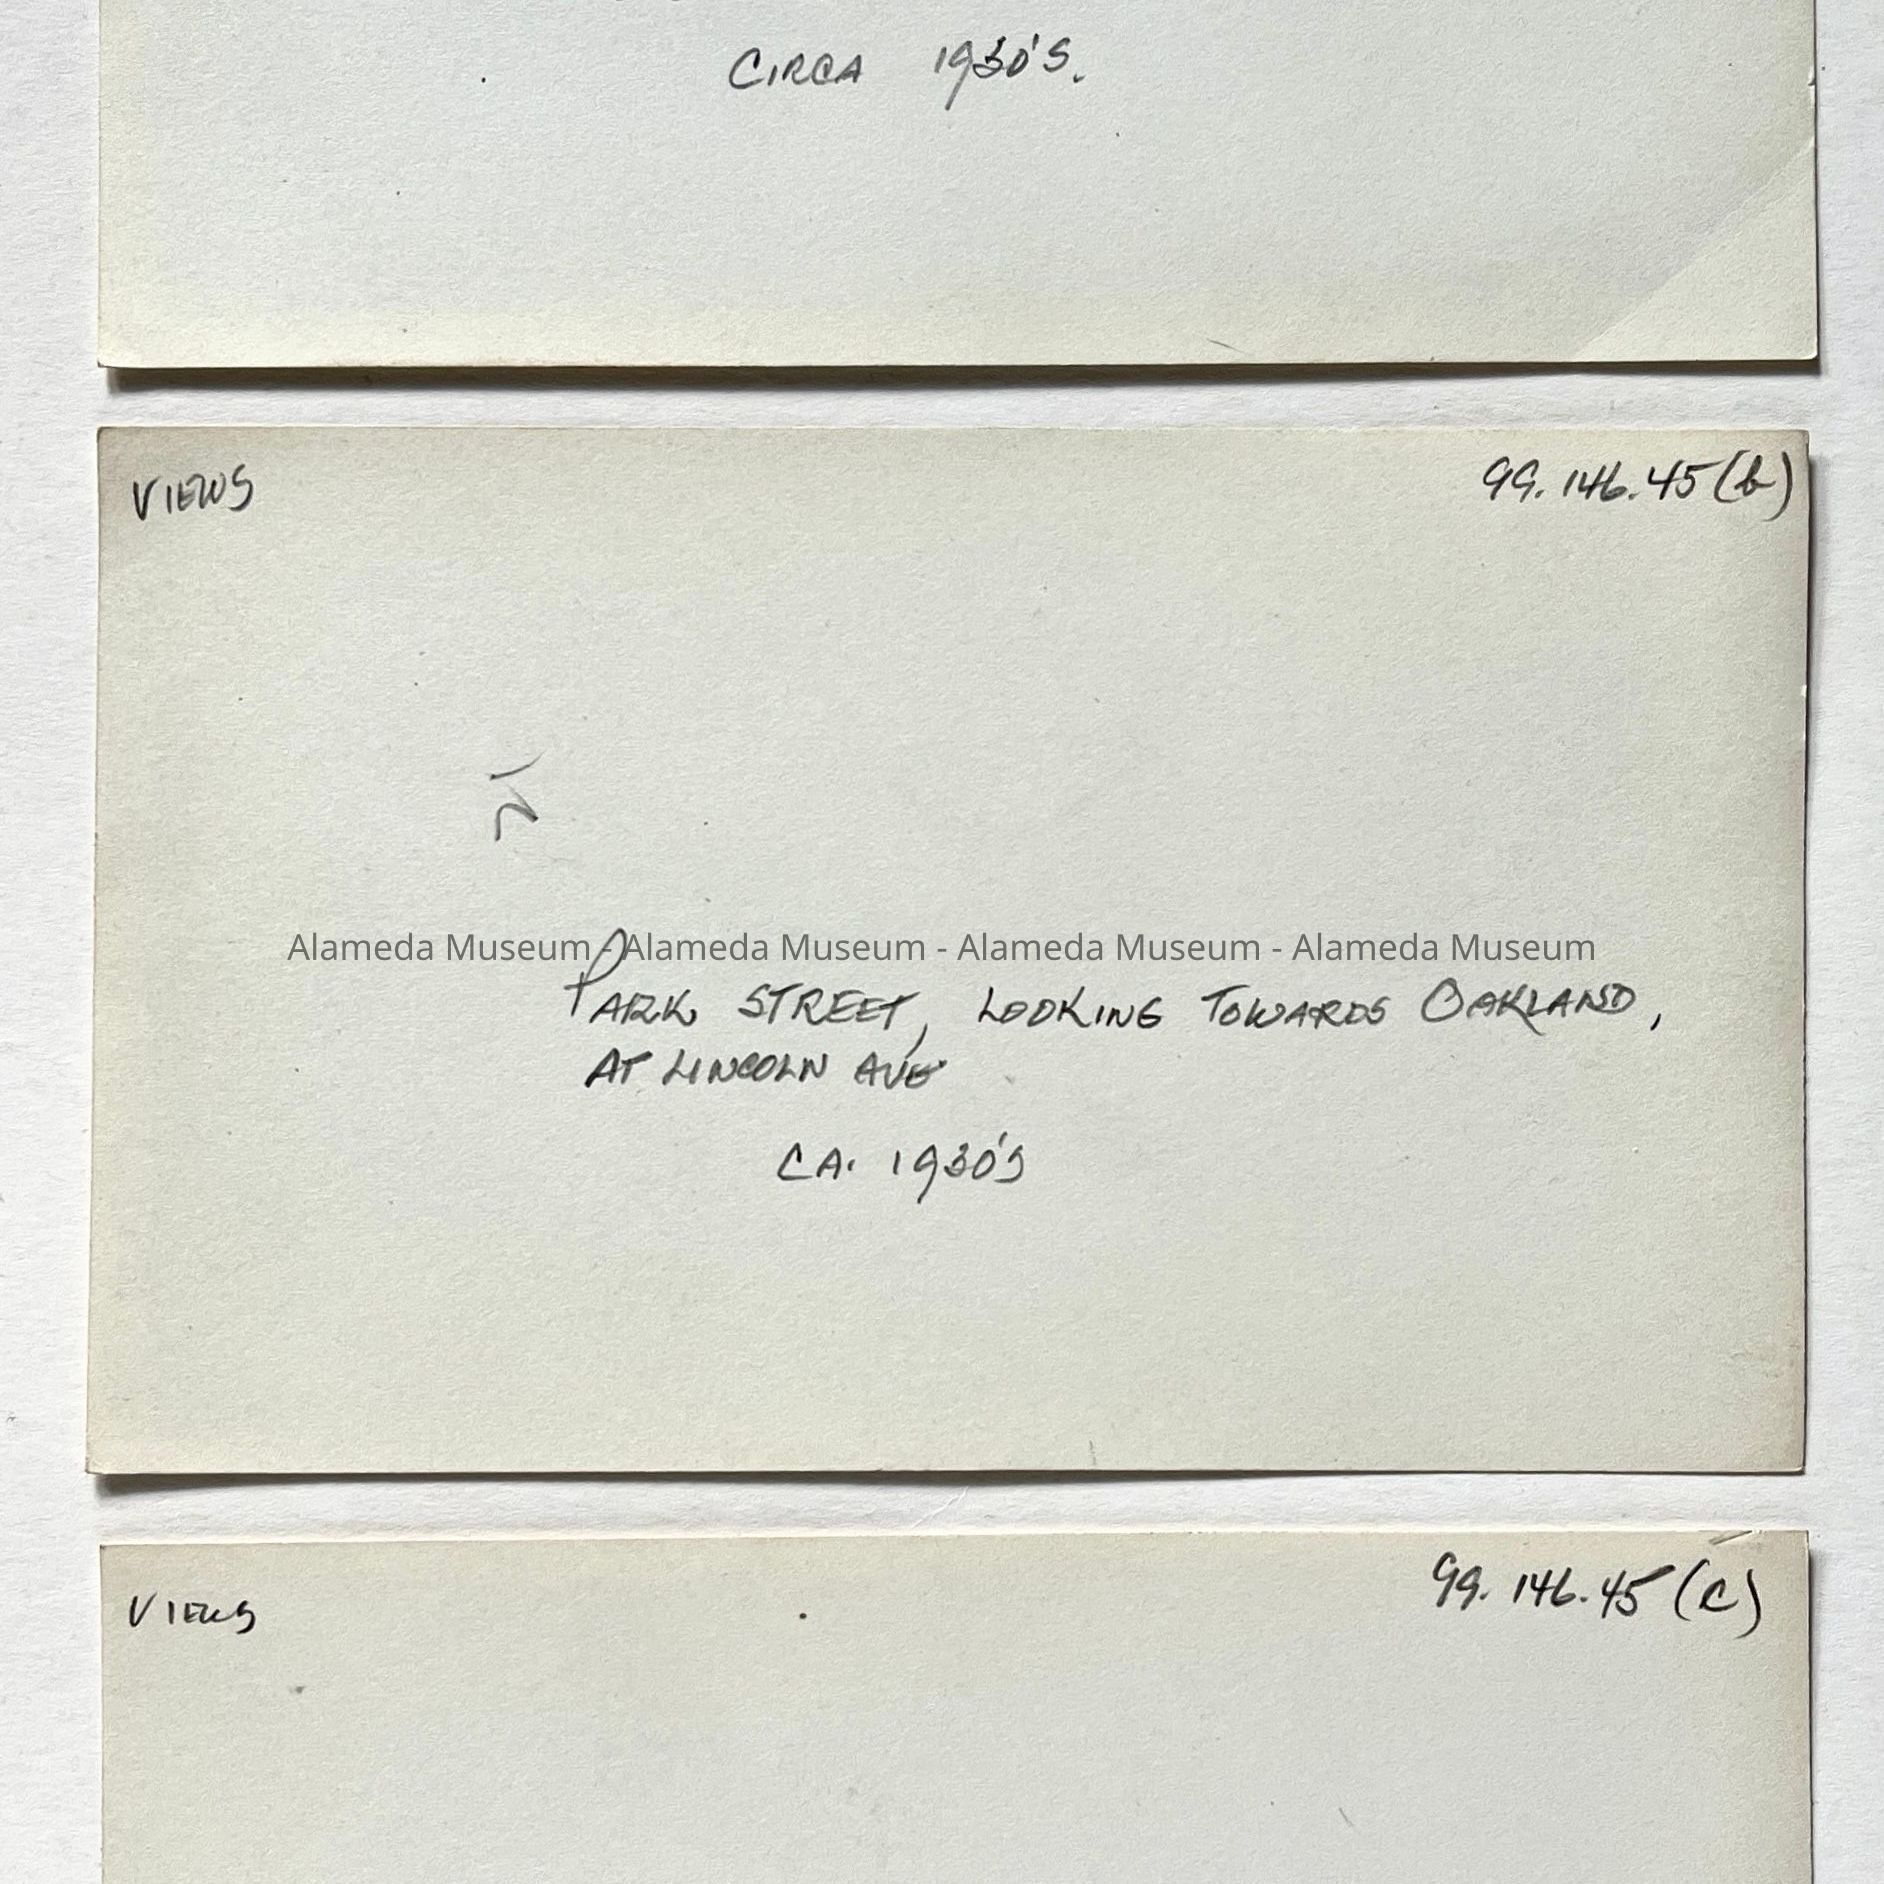 CIRCA 1930'S.
VIEWS 99.146.45(b)
Alameda Museum - Alameda Museum - Alameda Museum - Alameda Museum
PARK STREET, LOOKING TOWARDS OAKLAND,
AT LINCOLN AVE
CA. 1930'S
VIEWS 99.146.45(C)